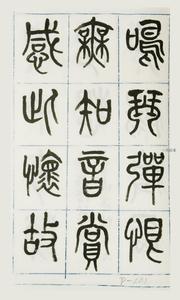 鳴琴彈恨
無知音賞
感此懷故